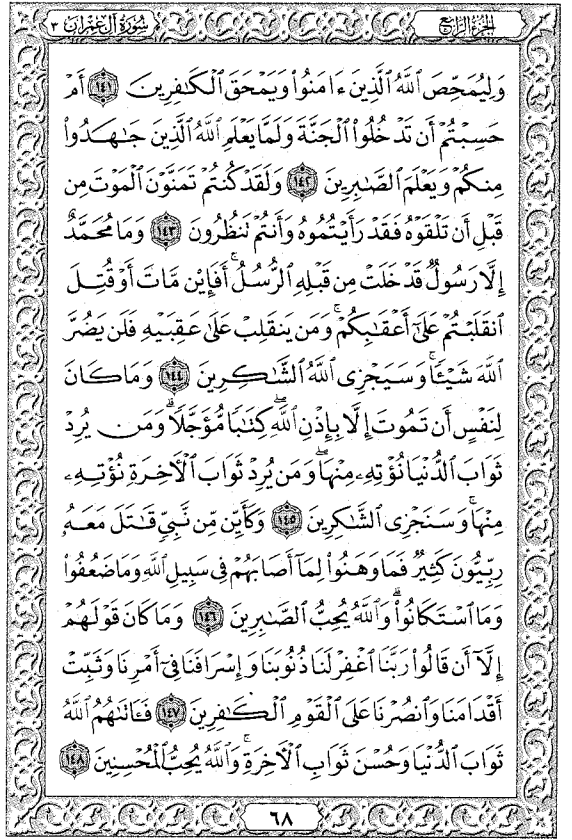 سُورَةُ آلِ عِمۡرَانَ ٣
الجُزءُ الرَّابِعُ
وَلِيُمَحِّصَ ٱللَّهُ ٱلَّذِينَ ءَامَنُواْ وَيَمۡحَقَ ٱلۡكَٰفِرِينَ ١٤١ أَمۡ
حَسِبۡتُمۡ أَن تَدۡخُلُواْ ٱلۡجَنَّةَ وَلَمَّا يَعۡلَمِ ٱللَّهُ ٱلَّذِينَ جَٰهَدُواْ
مِنكُمۡ وَيَعۡلَمَ ٱلصَّٰبِرِينَ ١٤٢ وَلَقَدۡ كُنتُمۡ تَمَنَّوۡنَ ٱلۡمَوۡتَ مِن
قَبۡلِ أَن تَلۡقَوۡهُ فَقَدۡ رَأَيۡتُمُوهُ وَأَنتُمۡ تَنظُرُونَ ١٤٣ وَمَا مُحَمَّدٌ
إِلَّا رَسُولٞ قَدۡ خَلَتۡ مِن قَبۡلِهِ ٱلرُّسُلُۚ أَفَإِيْن مَّاتَ أَوۡ قُتِلَ
ٱنقَلَبۡتُمۡ عَلَىٰٓ أَعۡقَٰبِكُمۡۚ وَمَن يَنقَلِبۡ عَلَىٰ عَقِبَيۡهِ فَلَن يَضُرَّ
ٱللَّهَ شَيۡـٔٗاۚ وَسَيَجۡزِي ٱللَّهُ ٱلشَّٰكِرِينَ ١٤٤ وَمَا كَانَ
لِنَفۡسٍ أَن تَمُوتَ إِلَّا بِإِذۡنِ ٱللَّهِ كِتَٰبٗا مُّؤَجَّلٗاۗ وَمَن يُرِدۡ
ثَوَابَ ٱلدُّنۡيَا نُؤۡتِهِۦ مِنۡهَا وَمَن يُرِدۡ ثَوَابَ ٱلۡأٓخِرَةِ نُؤۡتِهِۦ
مِنۡهَاۚ وَسَنَجۡزِي ٱلشَّٰكِرِينَ ١٤٥ وَكَأَيِّن مِّن نَّبِيّٖ قَٰتَلَ مَعَهُۥ
رِبِّيُّونَ كَثِيرٞ فَمَا وَهَنُواْ لِمَآ أَصَابَهُمۡ فِي سَبِيلِ ٱللَّهِ وَمَا ضَعُفُواْ
وَمَا ٱسۡتَكَانُواْۗ وَٱللَّهُ يُحِبُّ ٱلصَّٰبِرِينَ ١٤٦ وَمَا كَانَ قَوۡلَهُمۡ
إِلَّآ أَن قَالُواْ رَبَّنَا ٱغۡفِرۡ لَنَا ذُنُوبَنَا وَإِسۡرَافَنَا فِيٓ أَمۡرِنَا وَثَبِّتۡ
أَقۡدَامَنَا وَٱنصُرۡنَا عَلَى ٱلۡقَوۡمِ ٱلۡكَٰفِرِينَ ١٤٧ فَـَٔاتَىٰهُمُ ٱللَّهُ
ثَوَابَ ٱلدُّنۡيَا وَحُسۡنَ ثَوَابِ ٱلۡأٓخِرَةِۗ وَٱللَّهُ يُحِبُّ ٱلۡمُحۡسِنِينَ ١٤٨
٦٨